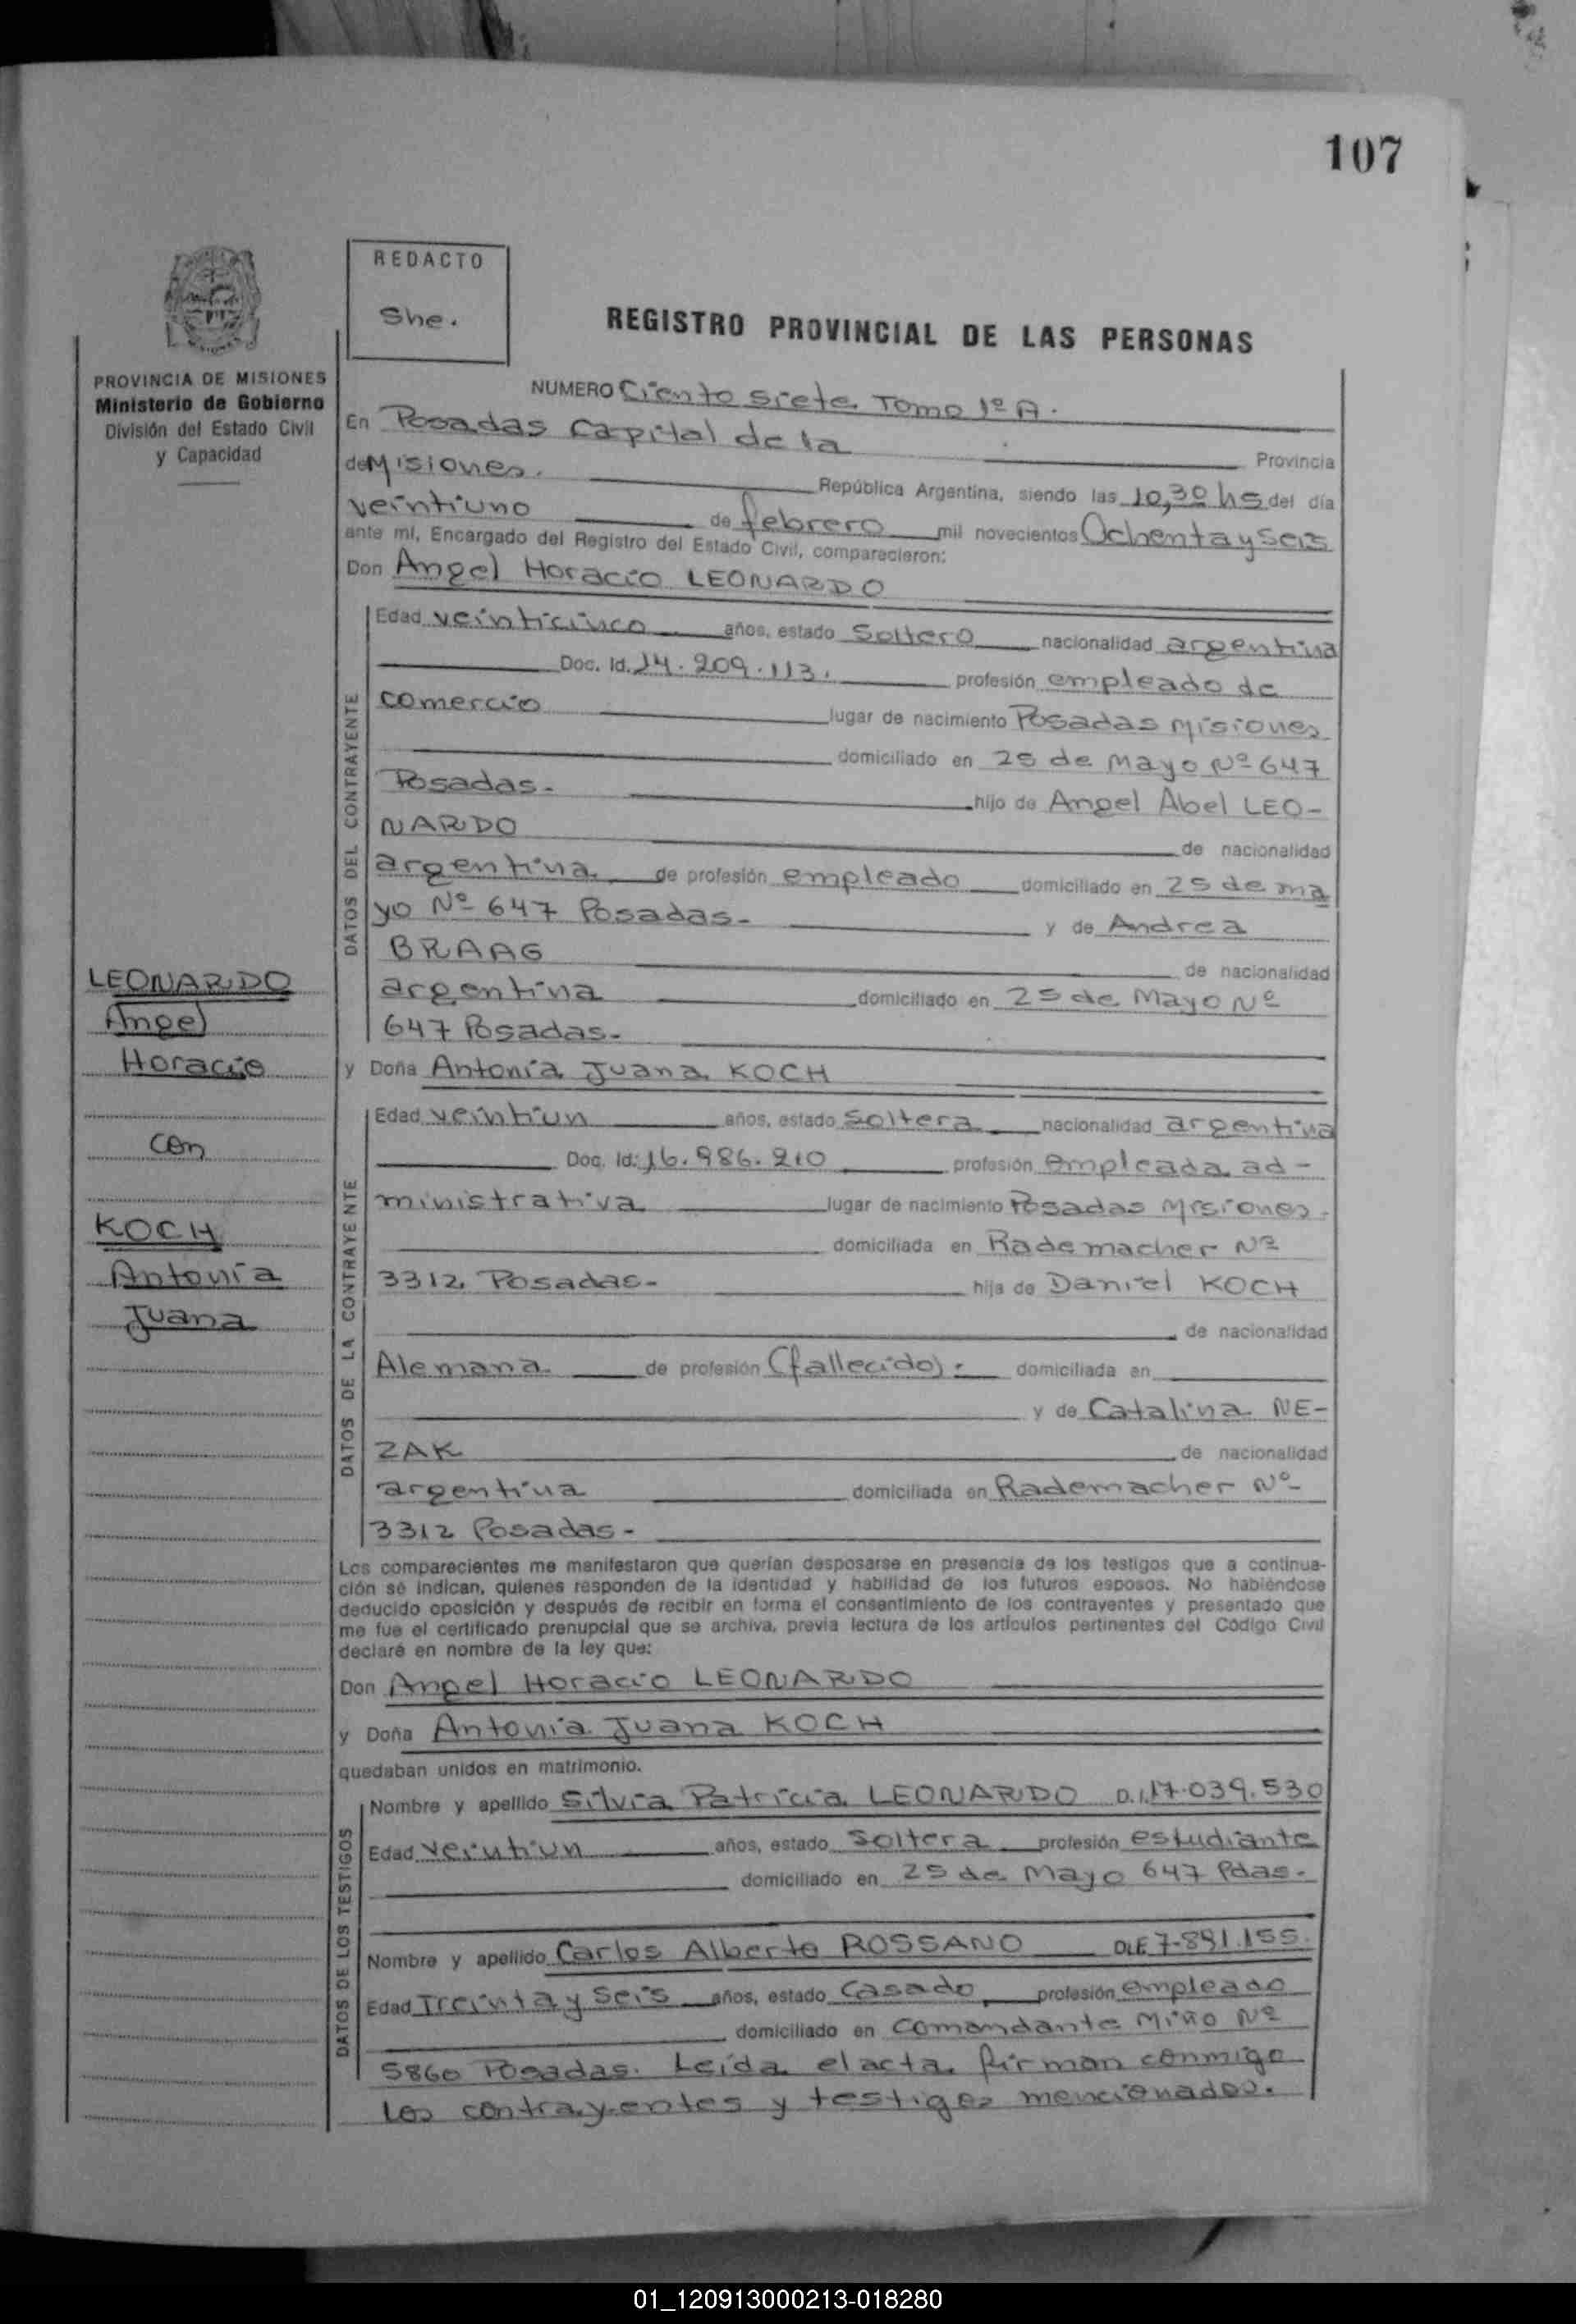 107
REDACTO
She.
REGISTRO PROVINCIAL DE LAS PERSONAS
PROVINCIA DE MISIONES
Ministerio de Gobierno
División del Estado Civil
y Capacidad
NUMERO Ciento siete Tomo 1º A.
En Posadas Capital de la Provincia
de Misiones. República Argentina, siendo las 10,30 hs del día
veintiuno de febrero mil novecientos Ochenta y Seis
ante mí, Encargado del Registro del Estado Civil, comparecieron:
Don Angel Horacio LEONARDO
DATOS DEL CONTRAYENTE
Edad veinticinco años, estado Soltero nacionalidad argentina
Doc. Id. 14.209.113. profesión empleado de
comercio lugar de nacimiento Posadas Misiones
domiciliado en 25 de Mayo Nº 647
Posadas- hijo de Angel Abel LEO-
NARDO de nacionalidad
argentina de profesión empleado domiciliado en 25 de ma
yo Nº 647 Posadas- y de Andrea
BRAAG de nacionalidad
argentina domiciliado en 25 de Mayo Nº
647 Posadas-
y Doña Antonia Juana KOCH
DATOS DE LA CONTRAYENTE
Edad veintiun años, estado soltera nacionalidad argentina
Doc. Id: 16.986.210 profesión empleada ad-
ministrativa lugar de nacimiento Posadas Misiones-
domiciliada en Rademacher Nº
3312 Posadas- hija de Daniel KOCH
de nacionalidad
Alemana de profesión (fallecido). domiciliada en
y de Catalina NE-
ZAK de nacionalidad
argentina domiciliada en Rademacher Nº
3312 Posadas-
LEONARDO
Angel
Horacio
con
KOCH
Antonia
Juana
Los comparecientes me manifestaron que querían desposarse en presencia de los testigos que a continua-
ción se indican, quienes responden de la identidad y habilidad de los futuros esposos. No habiéndose
deducido oposición y después de recibir en forma el consentimiento de los contrayentes y presentado que
me fue el certificado prenupcial que se archiva, previa lectura de los artículos pertinentes del Código Civil
declaré en nombre de la ley que:
Don Angel Horacio LEONARDO
y Doña Antonia Juana KOCH
quedaban unidos en matrimonio.
DATOS DE LOS TESTIGOS
Nombre y apellido Silvia Patricia LEONARDO D.I. 17.039.530
Edad veintiun años, estado Soltera profesión estudiante
domiciliado en 25 de Mayo 647 Pdas-
Nombre y apellido Carlos Alberto ROSSANO DLE 7-891.155.
Edad Treinta y Seis años, estado Casado, profesión empleado
domiciliado en Comandante Miño Nº
5860 Posadas. Leída el acta, firman conmigo
los contrayentes y testigos mencionados.
01_120913000213-018280